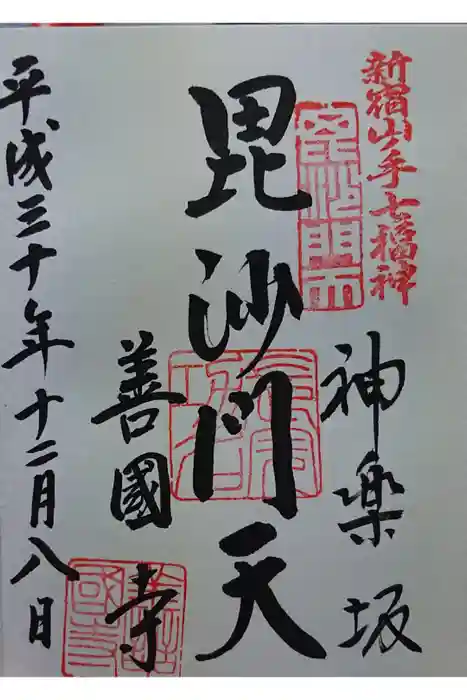 新宿山手七福神
神楽坂
毘沙門天
善國寺
平成三十年十二月八日